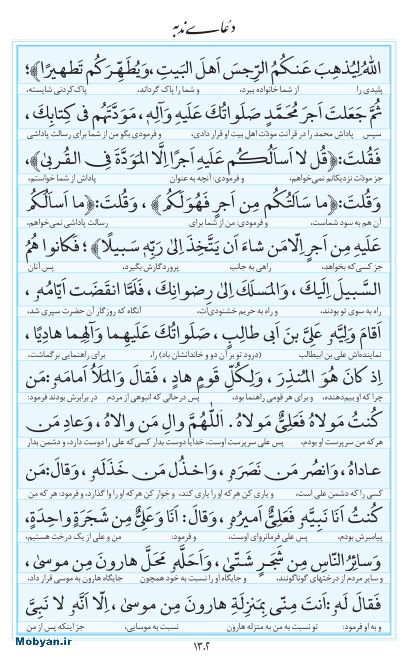 دعای ندبه
اللهُ لِیُذهِبَ عَنکُمُ الرِّجسَ اَهلَ البَیتِ ،وَیُطَهِّرَکُم تَطهیرًا﴾؛
پلیدی را از شما خانواده ببرد، و شما را پاک گرداند، پاک‌کردنی شایسته،
ثُمَّ جَعَلتَ اَجرَ مُحَمَّدٍ صَلَواتُكَ عَلَیهِ وَآلِهِ، مَوَدَّتَهُم فی کِتابِكَ،
سپس پاداش محمد را در قرآنت مودّت اهل بیت او قرار دادی، و فرمودی بگو من از شما برای رسالت پاداشی
فَقُلتَ:﴿قُل لا اَسأَلُکُم عَلَیهِ اَجرًا اِلَّا المَوَدَّةَ فِی القُربیٰ﴾،
جز مودّت نزدیکانم نمی‌خواهم، و فرمودی: آنچه به عنوان پاداش از شما خواستم،
وَقُلتَ:﴿ما سَأَلتُکُم مِن اَجرٍ فَهُوَلَکُم﴾ ، وَقُلتَ:﴿ما اَسأَلُکُم
آن هم به سود شماست، و فرمودی: من از شما برای رسالت پاداشی نمی‌خواهم،
عَلَیهِ مِن اَجرٍ اِلّامَن شاءَ اَن یَتَّخِذَ اِلیٰ رَبِّهِ سَبیلًا﴾ ؛ فَکانوا هُمُ
جز کسی که بخواهد، راهی به جانب پروردگارش بگیرد، پس آنان
السَّبیلَ اِلَیكَ ، وَالمَسلَكَ اِلیٰ رِضوانِكَ ، فَلَمَّا انقَضَت اَیّامُهُ ،
راه به سوی تو بودند، و راه به حریم خشنودی‌ات، آنگاه که روزگار آن حضرت سپری شد،
اَقامَ وَلِیَّهُ عَلِیَّ بنَ اَبی طالِبٍ ، صَلَواتُكَ عَلَیهِما وَآلِهِما هادِیًا ،
نماینده‌اش علی بن ابیطالب (درود تو بر آن دو و خاندانشان باد) را، برای راهنمایی برگماشت،
اِذ کانَ هُوَ المُنذِرَ ، وَلِکُلِّ قَومٍ هادٍ ، فَقالَ وَالمَلَأُ اَمامَهُ :مَن
چرا که او بیم‌دهنده، و برای هر قومی راهنما بود، پس درحالی که انبوهی از مردم در برابرش بودند فرمود:
کُنتُ مَولاهُ فَعَلِیٌّ مَولاهُ . اَللّٰهُمَّ والِ مَن والاهُ ، وَعادِ مَن
هر که من سرپرست او بودم، پس علی سرپرست اوست، خدایا دوست بدار کسی که علی را دوست دارد، و دشمن بدار
عاداهُ ، وَانصُر مَن نَصَرَهُ ، وَاخذُل مَن خَذَلَهُ ، وَقالَ:مَن
کسی را که دشمن علی است، و یاری کن هر که او را یاری کند، و خوار کن هر که او را وا گذارد، و فرمود: هر که من
کُنتُ اَنَا نَبِیَّهُ فَعَلِیٌّ اَمیرُهُ ، وَقالَ: اَنَا وَعَلِیٌّ مِن شَجَرَةٍ واحِدَةٍ،
پیامبرش بودم، پس علی فرمانروای اوست، و فرمود: من و علی از یک درخت هستیم،
وَسائِرُ النّاسِ مِن شَجَرٍ شَتّیٰ ، وَاَحَلَّهُ مَحَلَّ هارونَ مِن موسیٰ،
و سایر مردم از درختهای گوناگونند، و جایگاه او را نسبت به خود همچون جایگاه هارون به موسی قرار داد،
فَقالَ لَهُ :اَنتَ مِنّی بِمَنزِلَةِ هارونَ مِن موسیٰ ، اِلّا اَنَّهُ لا نَبِیَّ
و به او فرمود: تو نسبت به من به منزله هارون نسبت به موسایی، جز اینکه پس از من
۱۳۰۲
Mobyan.ir